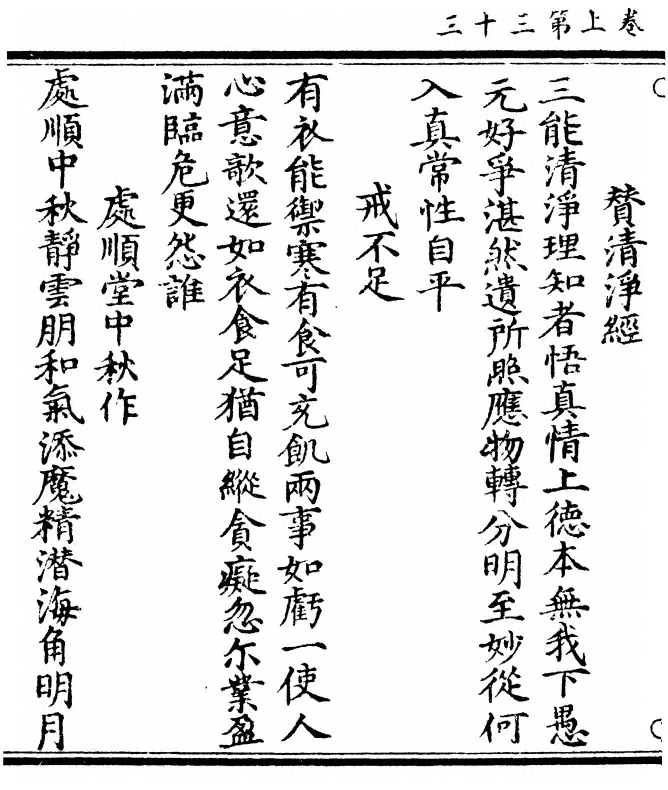 卷上第三十三
贊清淨經
三能清淨理知者悟真情上德本無我下愚
元好爭湛然遺所照應物轉分明至妙從何
入真常性自平
戒不足
有衣能禦寒有食可充飢兩事如虧一使人
心意歌還如衣食足猶自縱貪癡忽尔業盈
滿臨危更怨誰
處順堂中秋作
處順中秋靜雲朋和氣添魔精潛海角明月